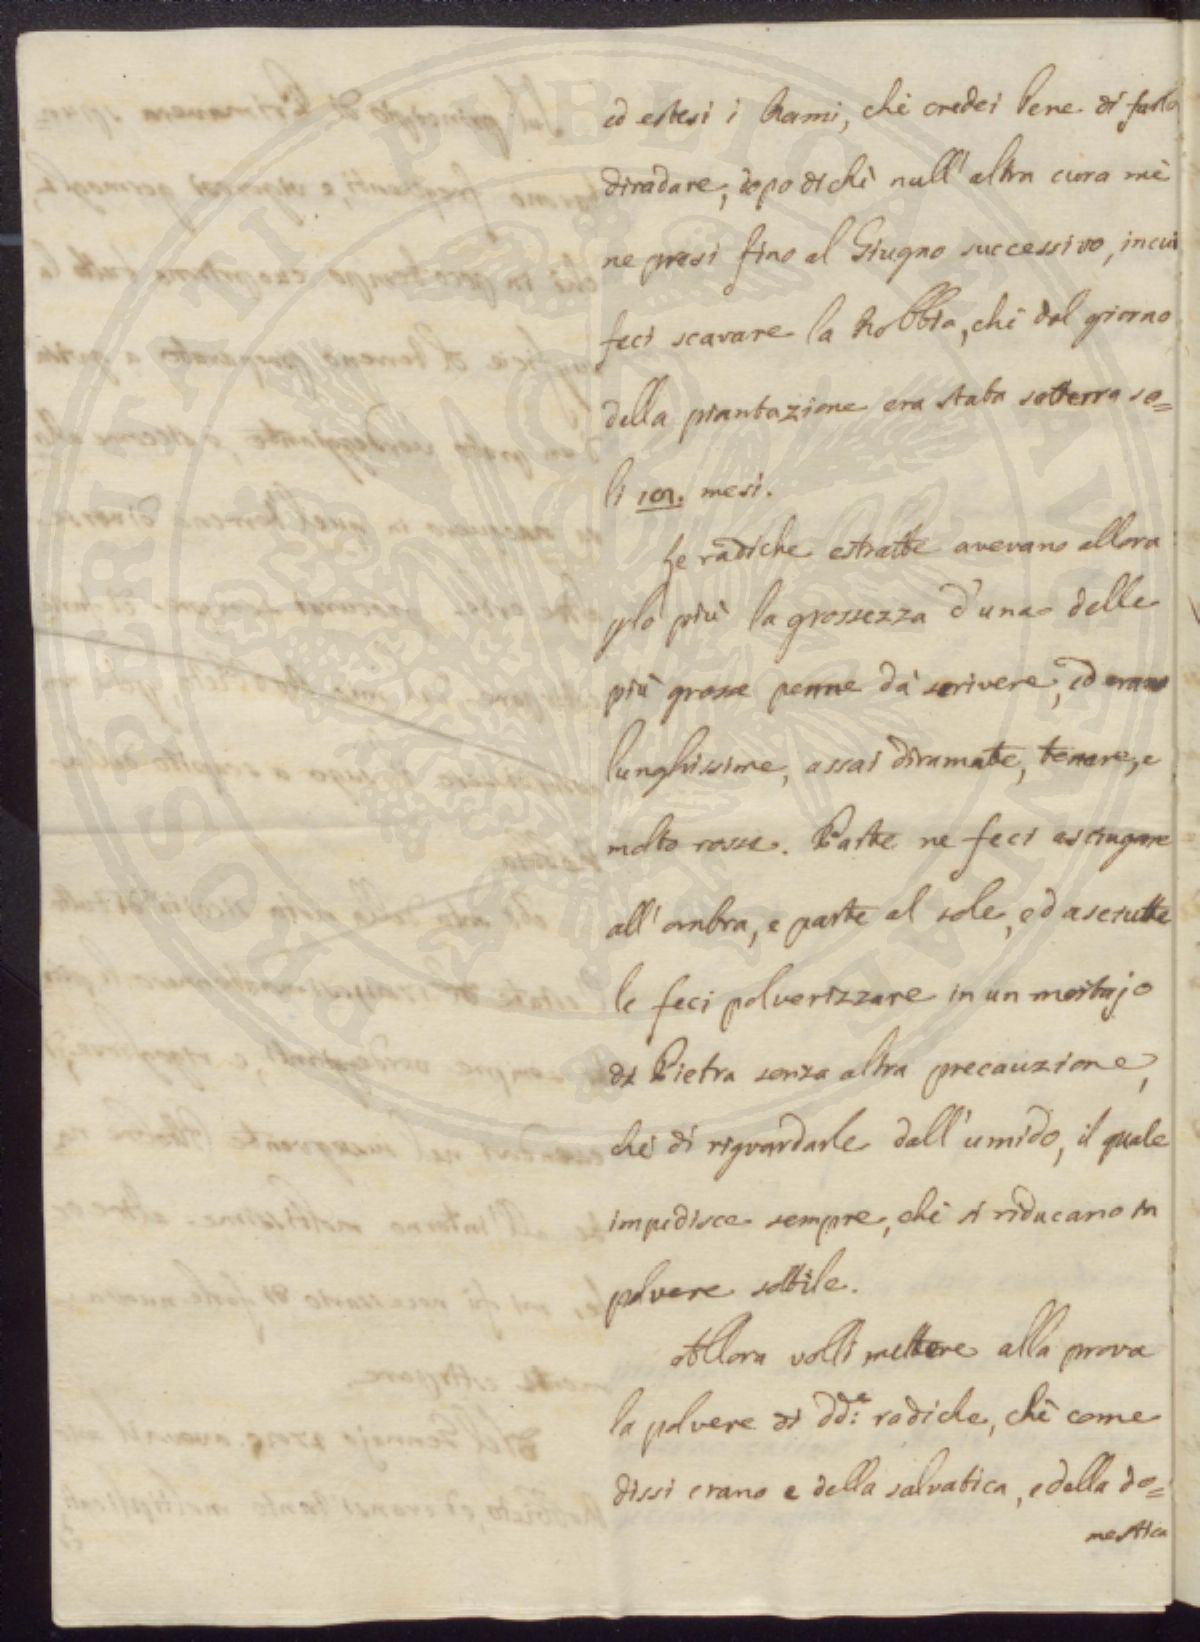 ed estesi i Rami, chè credei bene di farla
diradare, dopo di chè null'altra cura mè
ne presi fino al Giugno successivo, in cui
feci scavare la Robbia, chè dal giorno
della piantazione era stata sotterra so=
li mesi.
Le radiche estratte avevano allora
plo più la grossezza d'una delle
più grosse penne da scrivere, ed erano
lunghissime, assai diramate, tenere, e
molto rosse. Parte ne feci asciugare
all'ombra, e parte al sole, ed asciutte
le feci polverizzare in un mortajo
di Pietra senza altra precauzione,
chè di riguardarle dall'umido, il quale
impedisce sempre, chè si riducano in
polvere sottile.
Allora volli mettere alla prova
la polvere di dd:e radiche, chè come
dissi erano e della salvatica, e della do=
mestica